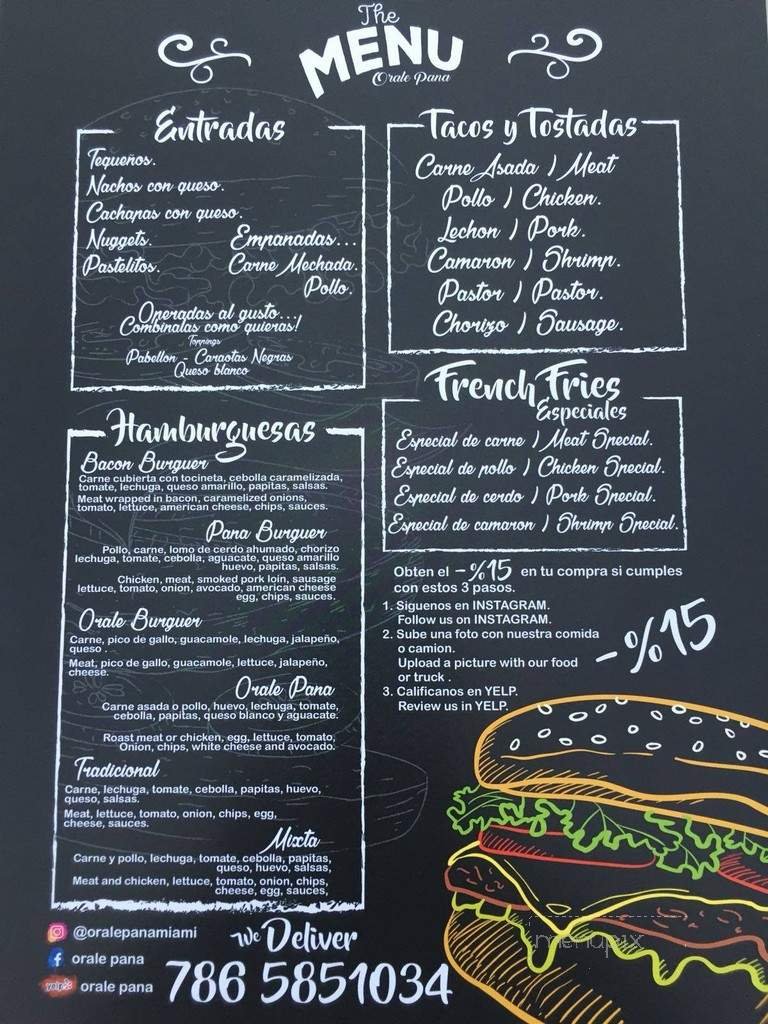 The
MENU
Orale Pana
Entradas
Tequeños.
Nachos con queso.
Cachapas con queso.
Nuggets.
Pastelitos.
Empanadas...
Carne Mechada.
Pollo.
Operadas al gusto...
Combinalas como quieras!
Toppings
Pabellon - Caraotas Negras
Queso blanco
Tacos y Tostadas
Carne Asada / Meat
Pollo / Chicken.
Lechon / Pork.
Camaron / Shrimp.
Pastor / Pastor.
Chorizo / Sausage.
French Fries
Especiales
Especial de carne / Meat Special.
Especial de pollo / Chicken Special.
Especial de cerdo / Pork Special.
Especial de camaron / Shrimp Special.
Hamburguesas
Bacon Burguer
Carne cubierta con tocineta, cebolla caramelizada,
tomate, lechuga, queso amarillo, papitas, salsas.
Meat wrapped in bacon, caramelized onions,
tomato, lettuce, american cheese, chips, sauces.
Pana Burguer
Pollo, carne, lomo de cerdo ahumado, chorizo
lechuga, tomate, cebolla, aguacate, queso amarillo
huevo, papitas, salsas.
Chicken, meat, smoked pork loin, sausage
lettuce, tomato, onion, avocado, american cheese
egg, chips, sauces.
Orale Burguer
Carne, pico de gallo, guacamole, lechuga, jalapeño,
queso .
Meat, pico de gallo, guacamole, lettuce, jalapeño,
cheese.
Orale Pana
Carne asada o pollo, huevo, lechuga, tomate,
cebolla, papitas, queso blanco y aguacate.
Roast meat or chicken, egg, lettuce, tomato,
Onion, chips, white cheese and avocado.
Tradicional
Carne, lechuga, tomate, cebolla, papitas, huevo,
queso, salsas.
Meat, lettuce, tomato, onion, chips, egg,
cheese, sauces.
Mixta
Carne y pollo, lechuga, tomate, cebolla, papitas,
queso, huevo, salsas,
Meat and chicken, lettuce, tomato, onion, chips,
cheese, egg, sauces,
Obten el -%15 en tu compra si cumples
con estos 3 pasos.
1. Siguenos en INSTAGRAM.
Follow us on INSTAGRAM.
2. Sube una foto con nuestra comida
o camion.
Upload a picture with our food
or truck .
3. Calificanos en YELP.
Review us in YELP.
-%15
@oralepanamiami
orale pana
yelp
orale pana
We Deliver
786 5851034
menupix